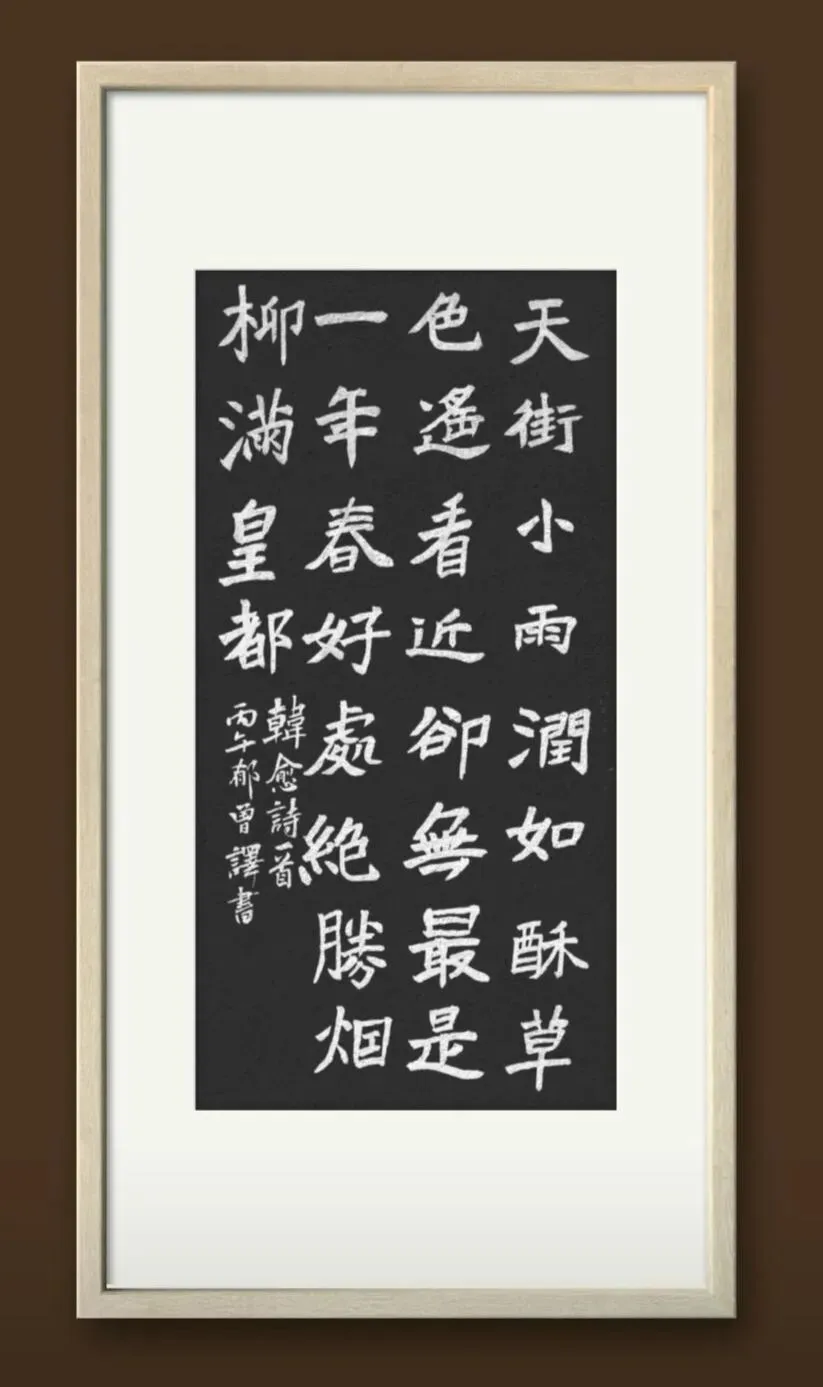 天街小雨潤如酥草
色遙看近卻無最是
一年春好處絶勝烟
柳滿皇都
韓愈詩一首
丙午郁曾譯書